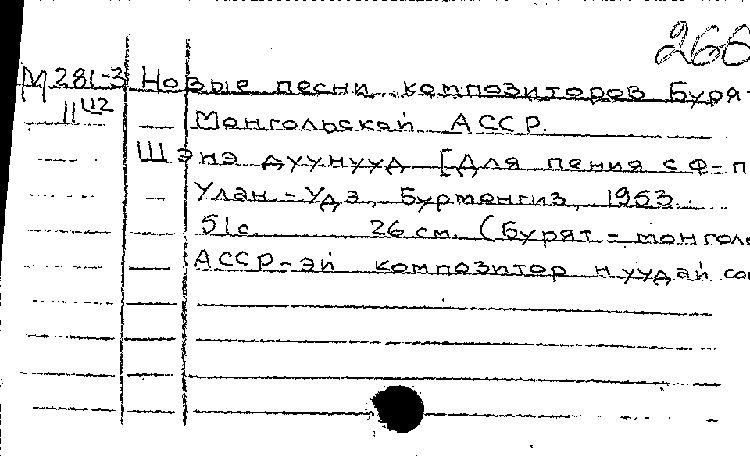 266
М 281-3 Новые песни композиторов Буря-
Монгольской АССР.
Шэнэ дуунууд [Для пения с ф-п
Улан-Удэ, Бурмонгиз, 1953.
51с. 26 см. (Бурят-монгол
АССР-эй композитор нуудай